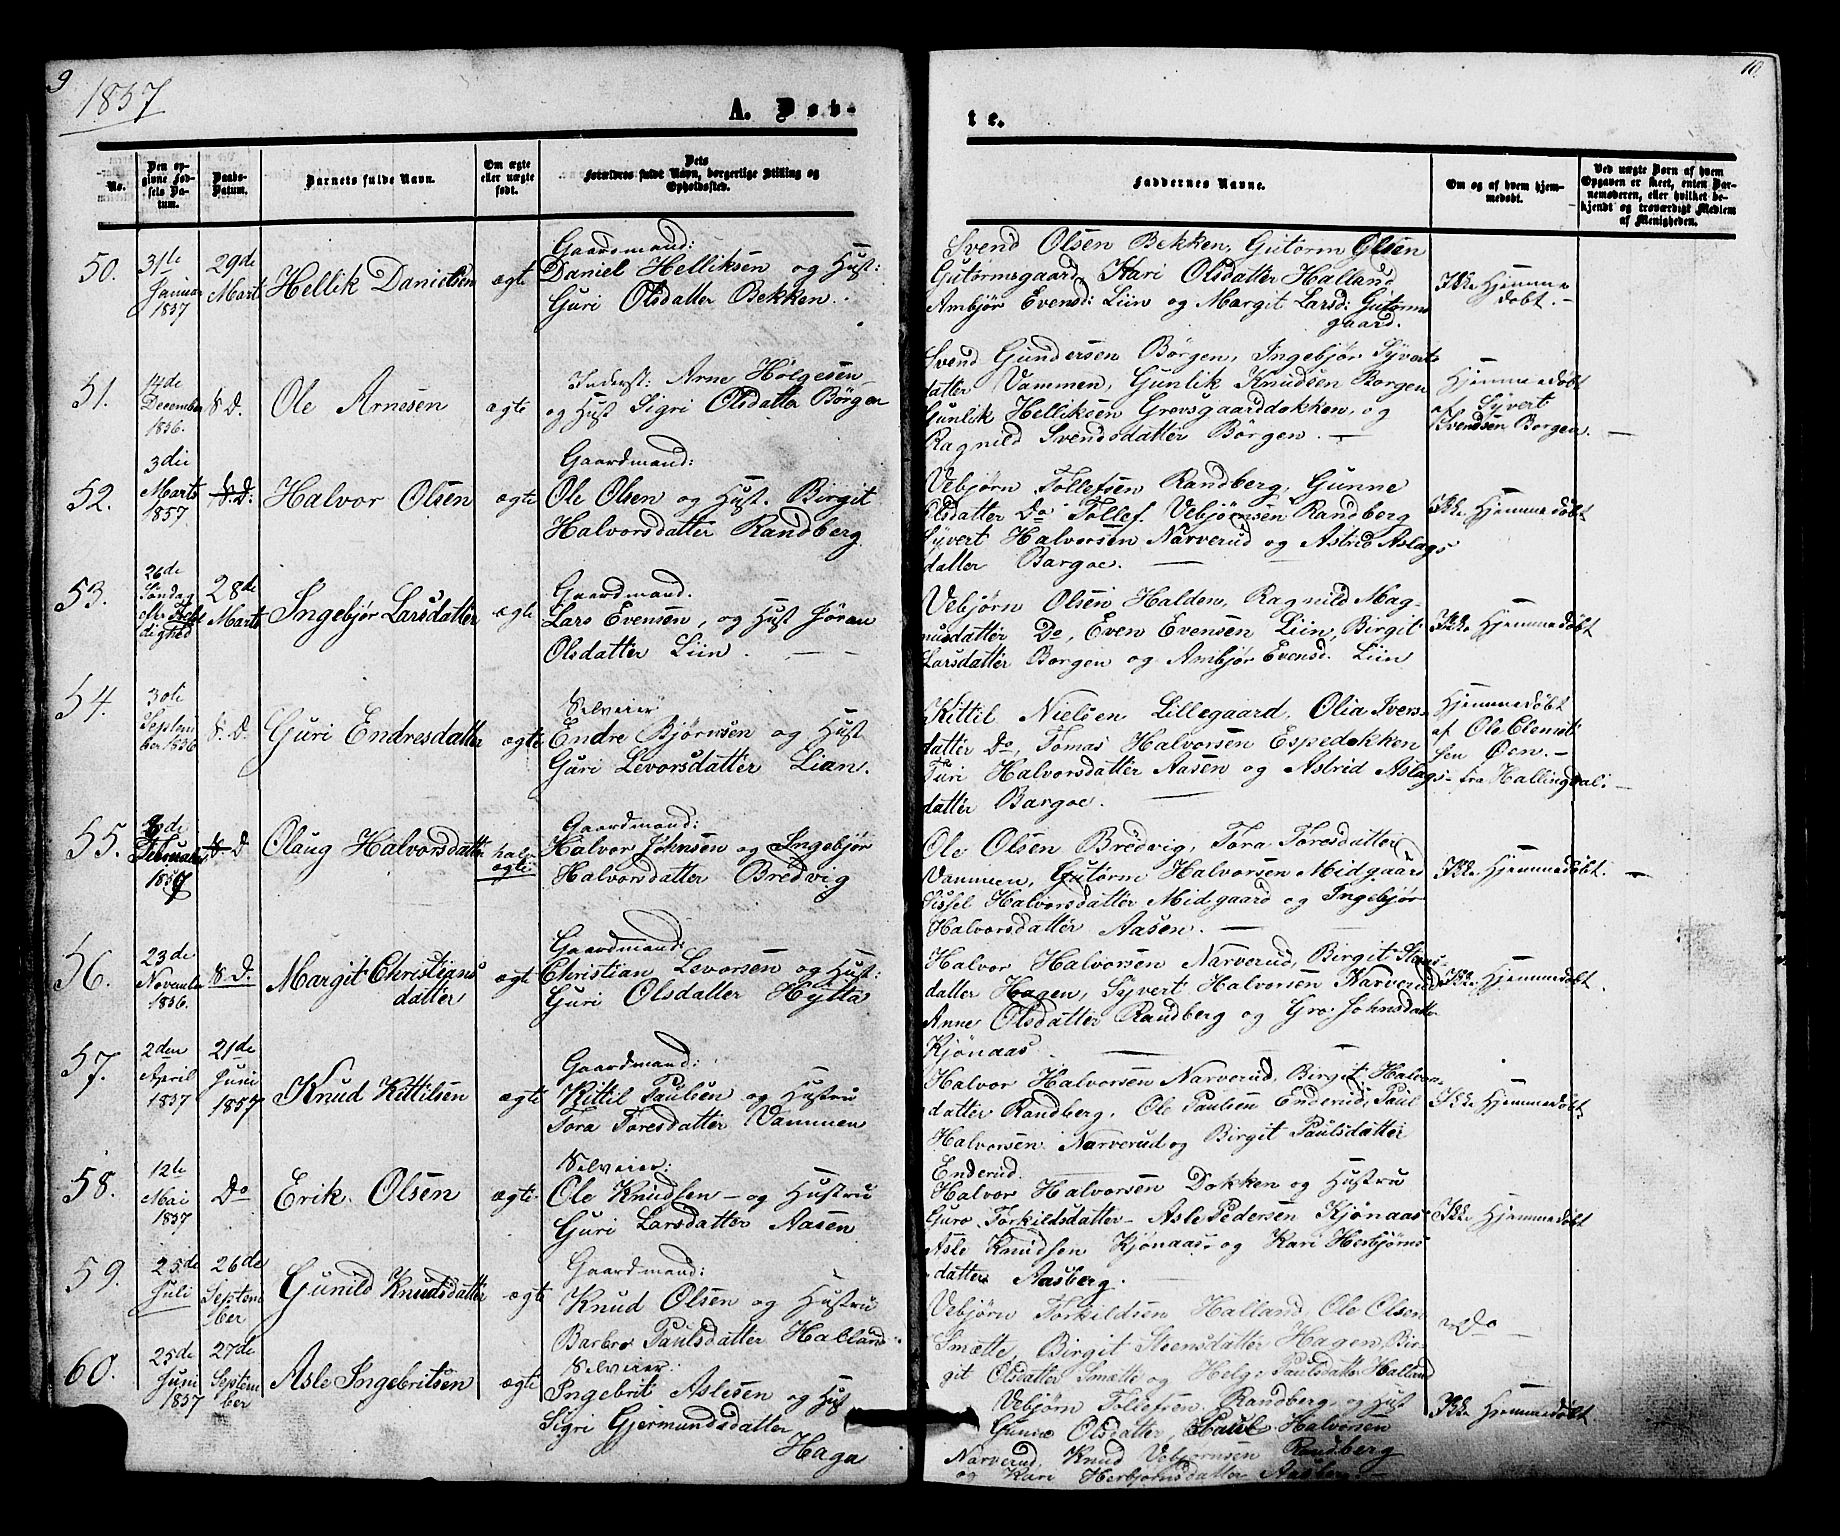 9
1857
A. Døb-
No.
Den opgivne Fødsels Datum.
Daabs-Datum.
Barnets fulde Navn.
Om ægte eller uægte født.
Dets Forældres fulde Navn, borgerlige Stilling og Opholdssted.
50.
31te Januar 1857
29de Marts
Hellik Danielsen
ægte
Gaardmand:
Daniel Helliksen og Hust:
Guri Olsdatter Bekken.
51.
14de December 1856.
S. D.
Ole Arnesen
ægte
Inderst: Arne Holgesen
og Hust Sigri Olsdatter Børgen
52.
3die Marts 1857
S. D.
Halvor Olsen
ægte
Gaardmand:
Ole Olsen og Hust. Birgit
Halvorsdatter Randberg.
53.
26de
28de Marts
Ingebjør Larsdatter
ægte
Gaardmand.
Lars Evensen, og Hust Jøran
Olsdatter Liin.
54.
September 1856
S. D.
Guri Endresdatter
ægte
Selveier
Endre Bjørnsen og Hust
Guri Levorsdatter Lian.
55.
Februar 1857
S. D
Olaug Halvorsdatter
ægte
Gaardmand:
Halvor Johnsen og Ingebjør
Halvorsdatter Brødvig
56.
23de Novembr 1856.
S. D.
Margit Christians
datter
ægte
Gaardmand:
Christian Levorsen og Hust:
Guri Olsdatter Hytta
57.
2den April 1857
21de Juni 1857
Knud Kittilsen
ægte
Gaardmand:
Kittil Paulsen og Hustru
Tora Toresdatter Vammen
58.
12te Mai 1857
Do
Erik Olsen
ægte
Selveier:
Ole Knudsen og Hustru
Guri Larsdatter Aasen
59.
25de Juli
26de September
Gunild Knudsdatter
ægte
Gaardmand:
Knud Olsen og Hustru
Barbro Paulsdatter Halland
60.
25de Juni 1857
27de September
Asle Ingebritsen
ægte
Selveier:
Ingebrit Aslesen og Hust
Sigri Gjermundsdatter
Haga
10.
te.
Faddernes Navne.
Om og af hvem hjemmedøbt.
Ved uægte Børn af hvem Opgaven er skeet, enten Barnemoderen, eller hvilket bekjendt og troværdigt Medlem af Menigheden.
Svend Olsen Bekken, Gutorm Olsen
Gutormsgaard, Kari Olsdatter Halland
Ambjør Evensd: Liin og Margit Larsd: Gutorms
gaard.
Ikke Hjemme
døbt.
Svend Gundersen Børgen, Ingebjør Syverts
datter Vammen, Gunlik Knudsen Borgen
Gunlik Helliksen Grevsgaarddokken, og
Ragnild Svendsdatter Børgen.
Hjemmedøbt
af Syvert
Svendsen Borgen.
Vebjørn Tollefsen Randberg, Gunne
Olsdatter Do Tollef Vebjørnsen Randberg
Syvert Halvorsen Narverud og Astrid Aslags
datter Bargoe.
Ikke Hjemmedøbt
Vebjørn Olsen Halden, Ragnild Mag-
nusdatter Do, Even Evensen Liin, Birgit
Larsdatter Borgen og Ambjør Evensd. Liin
Ikke Hjemmedøbt
Kittil Nielsen Lillegaard, Olia Ivers-
datter Do, Tomas Halvorsen Espedokken
Turi Halvorsdatter Aasen og Astrid Aslags-
datter Bargoe.
Hjemmedøbt
af Ole Clemet
sen Øen.
fra Hallingdal.
Ole Olsen Brødvig, Tora Toresdatter
Vammen, Gutorm Halvorsen Midgaard
Sissel Halvorsdatter Midgaard og Ingebjør
Halvorsdatter Aasen.
Ikke Hjemmedøbt.
Halvor Halvorsen Narverud, Birgit Steens-
datter Hagen, Syvert Halvorsen Narverud
Anne Olsdatter Randberg og Gro Johnsdatter
Kjønaas
Ikke Hjemmedøbt.
Halvor Halvorsen Narverud, Birgit Halvors-
datter Randberg, Ole Paulsen Enderud, Paul
Halvorsen Narverud og Birgit Paulsdatter
Enderud.
Ikke Hjemmedøbt
Halvor Halvorsen Dokken og Hustru
Guro Torkildsdatter - Asle Pedersen Kjønaas
Asle Knudsen Kjønaas, og Kari Herbjørns
datter Aasberg.
Ikke Hjemmedøbt
Vebjørn Torkildsen Halland, Ole Olsen
Smette, Birgit Steensdatter Hagen, Bir-
git Olsdatter Smette og Helge Paulsdatter Halland
Do
Vebjørn Tollefsen Randberg, og Hust
Gunne Olsdatter, Paul Halvorsen
Narverud, Knud Vebjørnsen Randberg
og Kari Herbjørnsdatter Aasberg
Ikke Hjemmedøbt